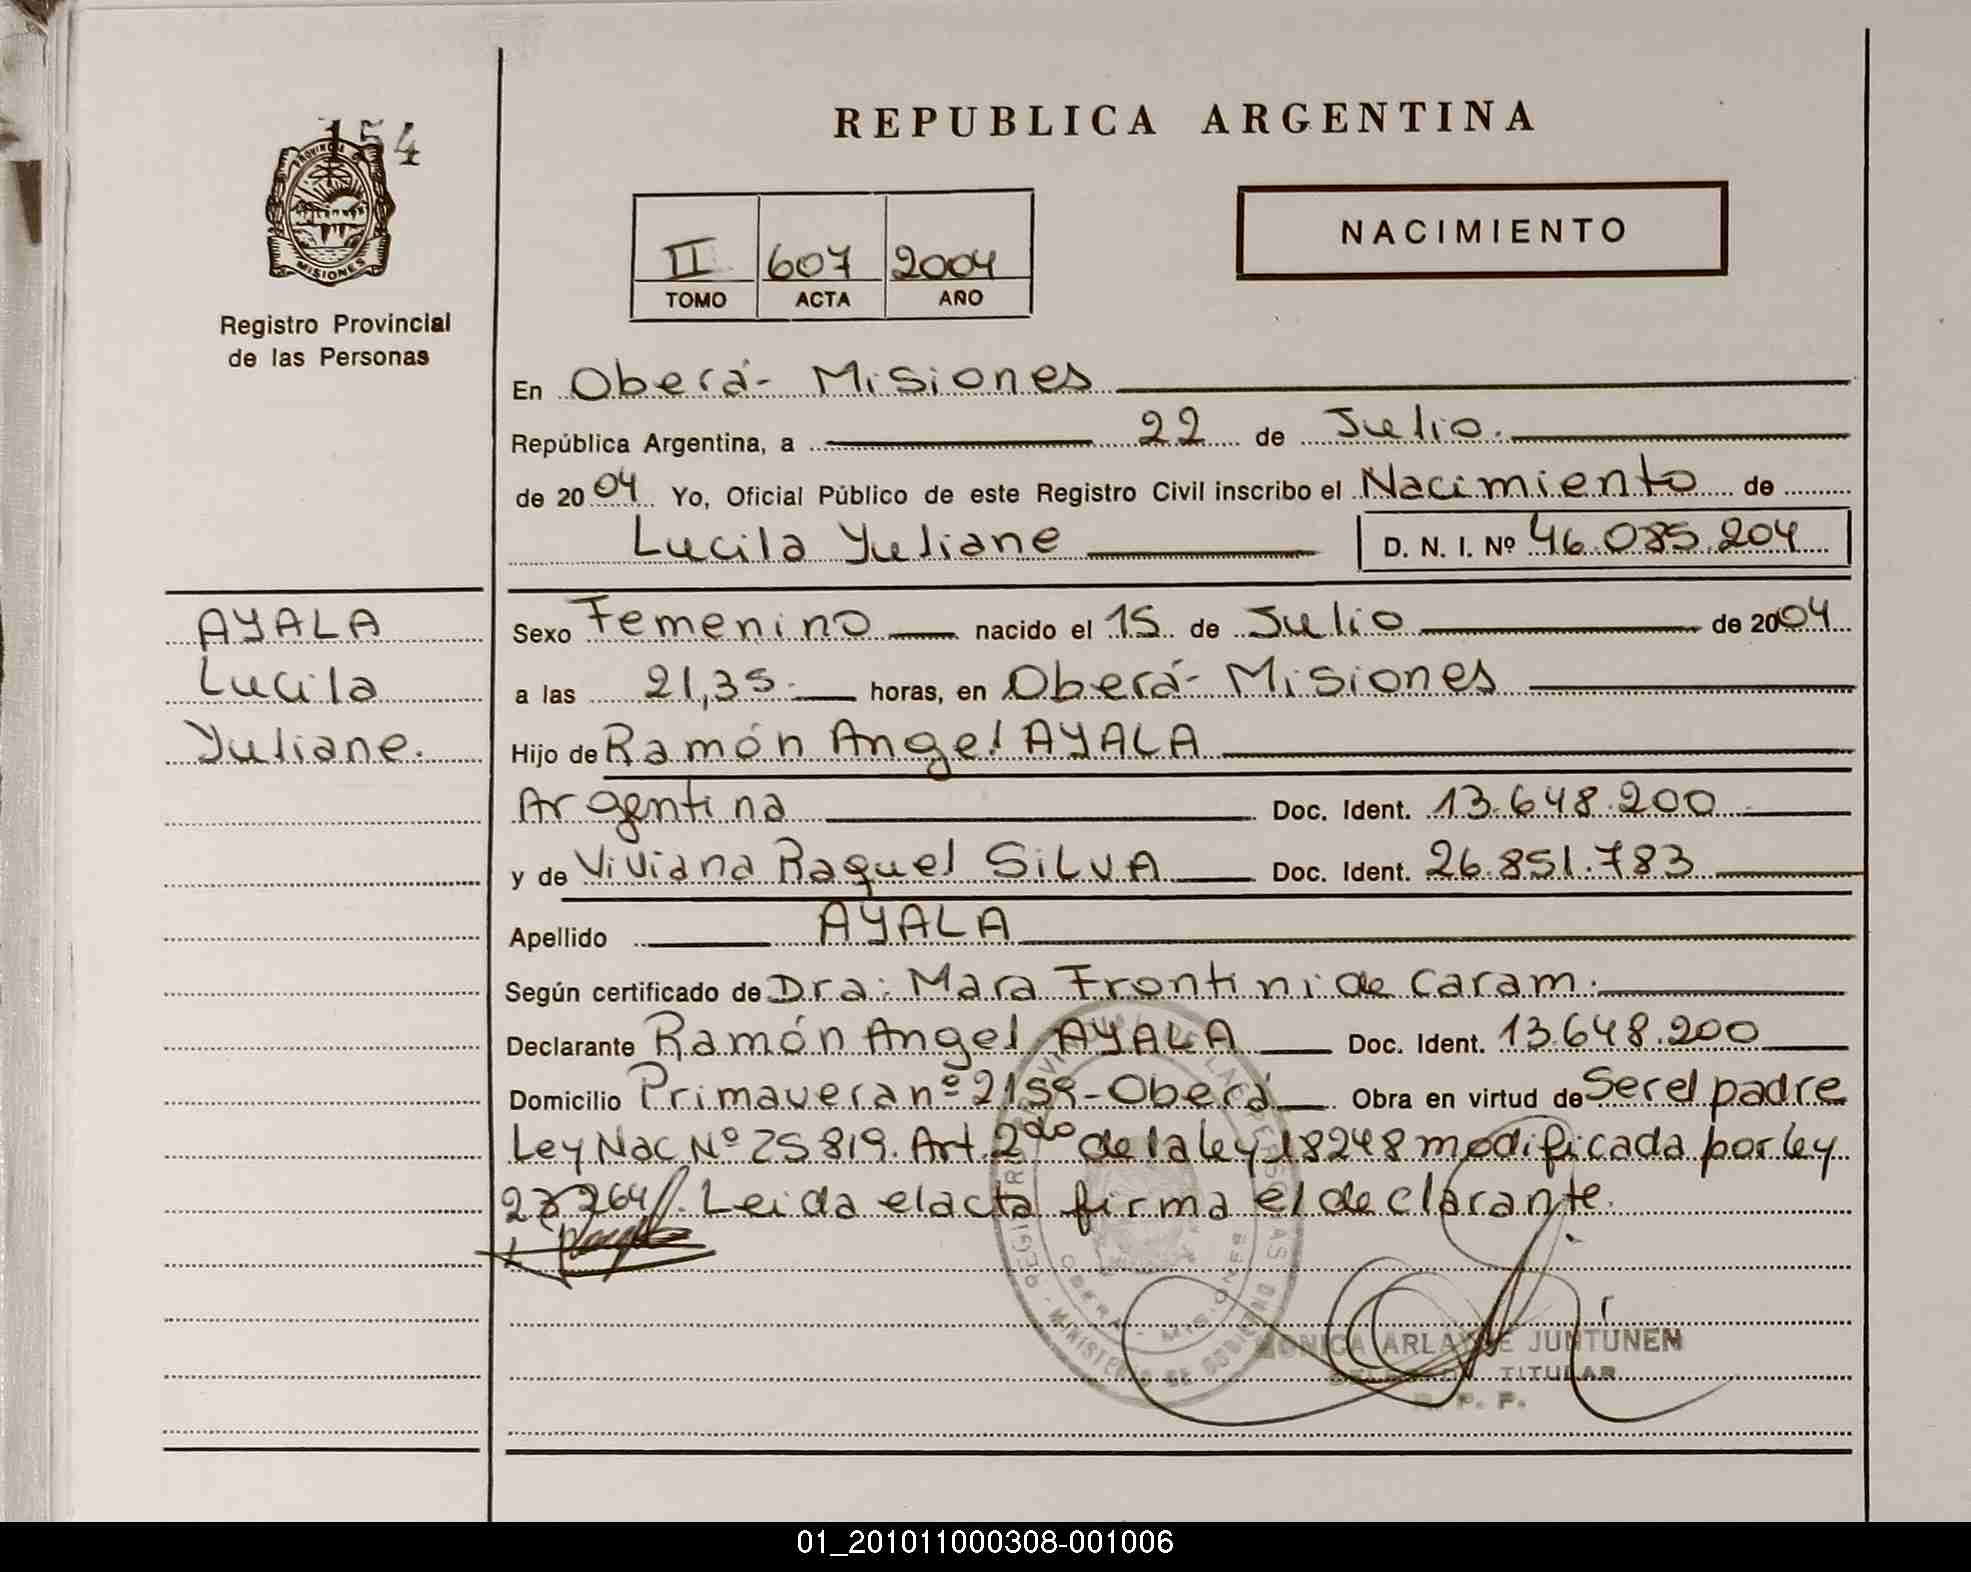 154
PROVINCIA DE
MISIONES
Registro Provincial
de las Personas
AYALA
Lucila
Yuliane.
REPUBLICA ARGENTINA
II 607 2004
TOMO ACTA AÑO
NACIMIENTO
En Oberá- Misiones
República Argentina, a 22 de Julio.
de 2004 Yo, Oficial Público de este Registro Civil inscribo el Nacimiento de
Lucila Yuliane D. N. I. Nº 46.085.204
Sexo Femenino nacido el 15 de Julio de 2004
a las 21,35- horas, en Oberá- Misiones
Hijo de Ramón Angel AYALA
Argentina Doc. Ident. 13.648.200
y de Viviana Raquel SILVA Doc. Ident. 26.851.783
Apellido AYALA
Según certificado de Dra: Mara Frontini de Caram.
Declarante Ramón Angel AYALA Doc. Ident. 13.648.200
Domicilio Primavera nº 2159-Oberá Obra en virtud de Ser el padre
Ley Nac Nº 25819. Art. 2do de la ley 18248 modificada por ley
264 Leida el acta firma el declarante.
OBERA - MISIONES
MINISTERIO DE GOBIERNO
MONICA ARLA E JUNTUNEN
TITULAR
R. P. P.
01_201011000308-001006